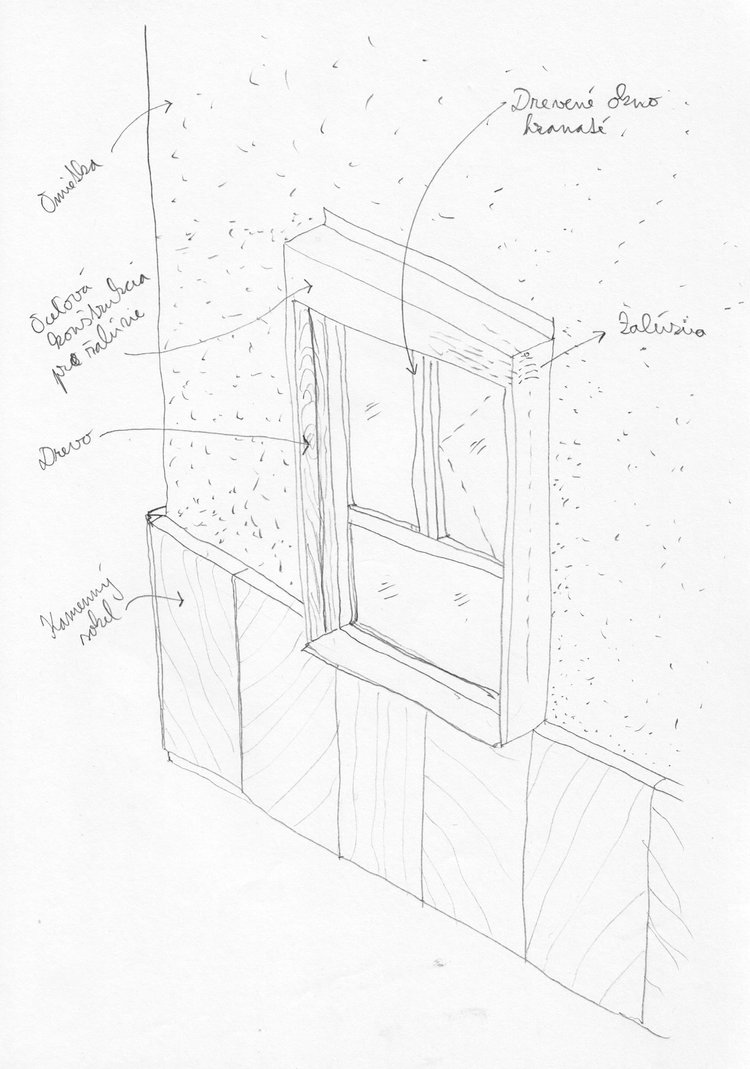 Omietka
Drevené okno
hranaté
Oceľová
konštrukcia
pre žalúzie
Žalúzia
Drevo
Kamenný
sokel